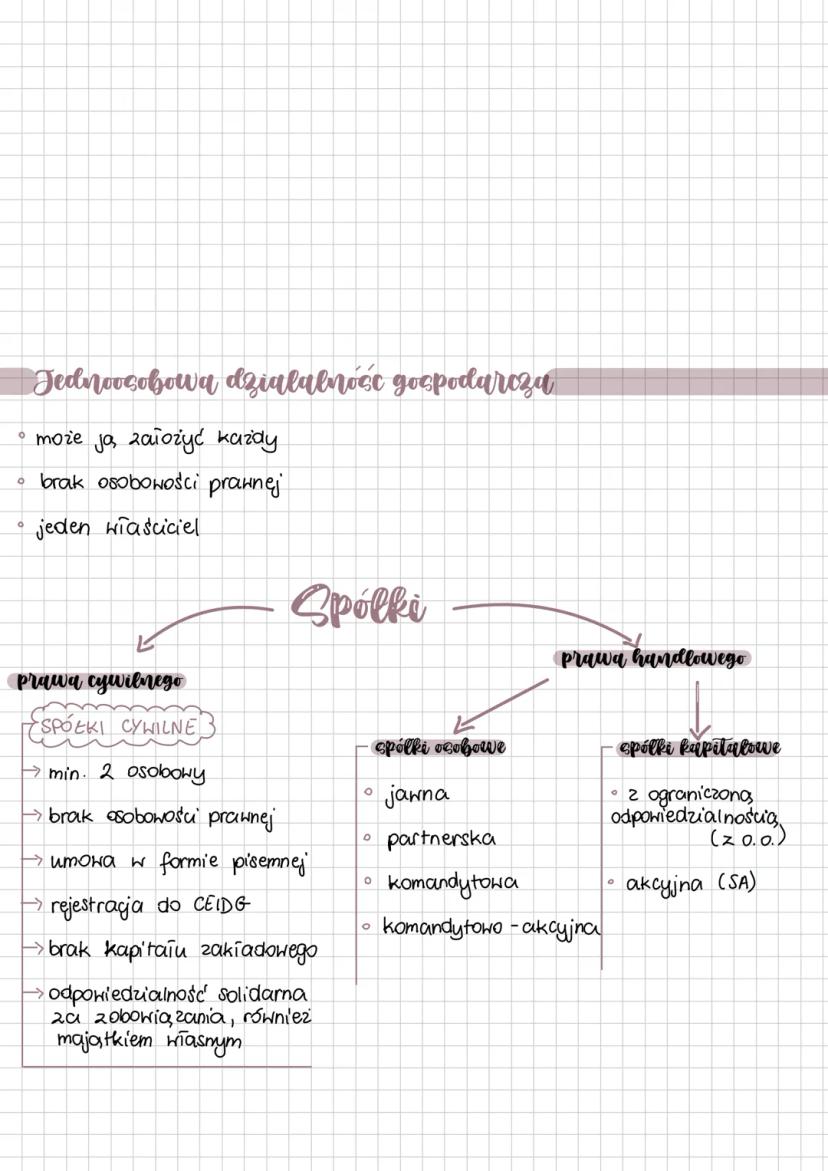 Jednoosobowa działalność gospodarcza
może ją założyć każdy
brak osobowości prawnej
jeden właściciel
Spółki
prawa cywilnego
prawa handlowego
SPÓŁKI CYWILNE
min. 2 osobowy
brak osobowości prawnej
umowa w formie pisemnej
rejestracja do CEIDG
brak kapitału zakładowego
odpowiedzialność solidarna
za zobowiązania, również
majątkiem własnym
spółki osobowe
jawna
partnerska
komandytowa
komandytowo - akcyjna
spółki kapitałowe
z ograniczoną
odpowiedzialnością
(z o.o.)
akcyjna (SA)